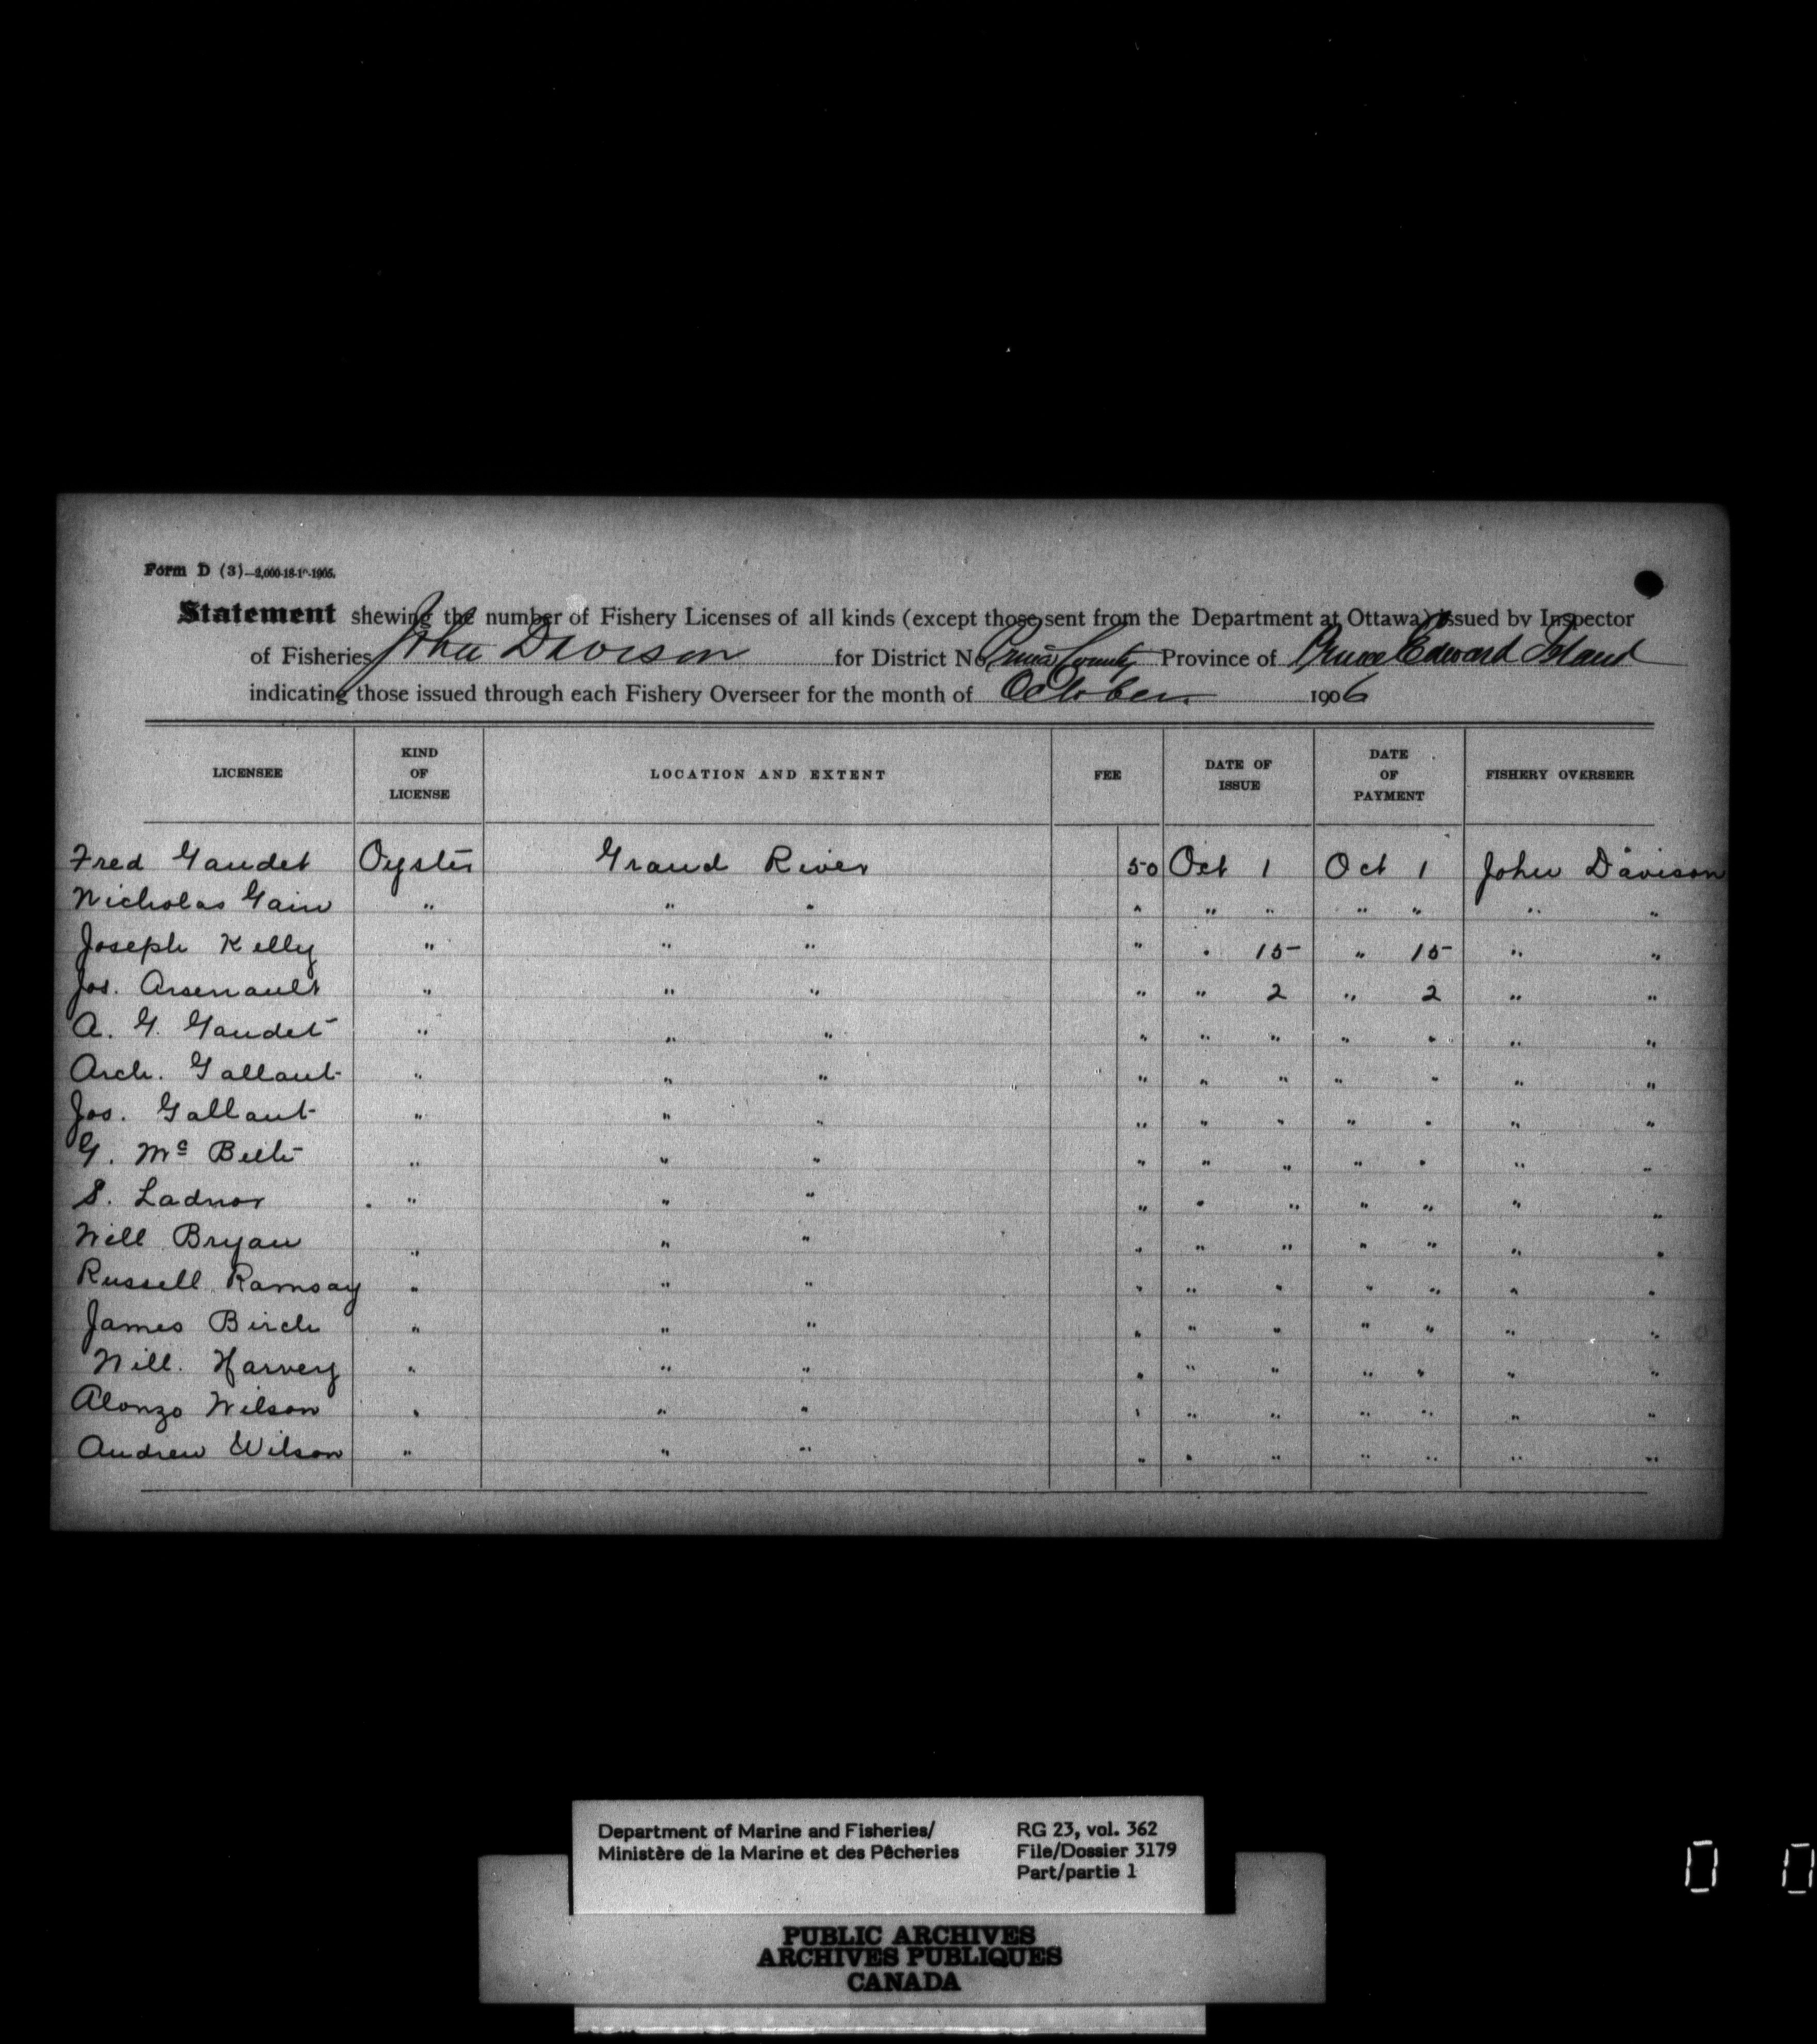 Form D (3)—2,000-18-1º-1905.
Statement shewing the number of Fishery Licenses of all kinds (except those sent from the Department at Ottawa) issued by Inspector
of Fisheries John Davison for District No Prince County Province of Prince Edward Island
indicating those issued through each Fishery Overseer for the month of October 1906
LICENSEE KIND OF LICENSE LOCATION AND EXTENT FEE DATE OF ISSUE DATE OF PAYMENT FISHERY OVERSEER
Fred Gaudet Oyster Grand River 50 Oct 1 Oct 1 John Davison
Nicholas Gain " " " " " " " " " "
Joseph Kelly " " " " " 15 " 15 " "
Jos. Arsenault " " " " " 2 " 2 " "
A. G. Gaudet " " " " " " " " " "
Arch. Gallant " " " " " " " " " "
Jos. Gallant " " " " " " " " " "
G. Mc " " " " " " " " " "
S. Ladnor " " " " " " " " " "
Will Bryan " " " " " " " " " "
Russell Ramsay " " " " " " " " " "
James Birch " " " " " " " " " "
Will. Harvey " " " " " " " " " "
Alonzo Wilson " " " " " " " " " "
Andrew Wilson " " " " " " " " " "
Department of Marine and Fisheries/ RG 23, vol. 362
Ministère de la Marine et des Pêcheries File/Dossier 3179
Part/partie 1
PUBLIC ARCHIVES
ARCHIVES PUBLIQUES
CANADA
0 0